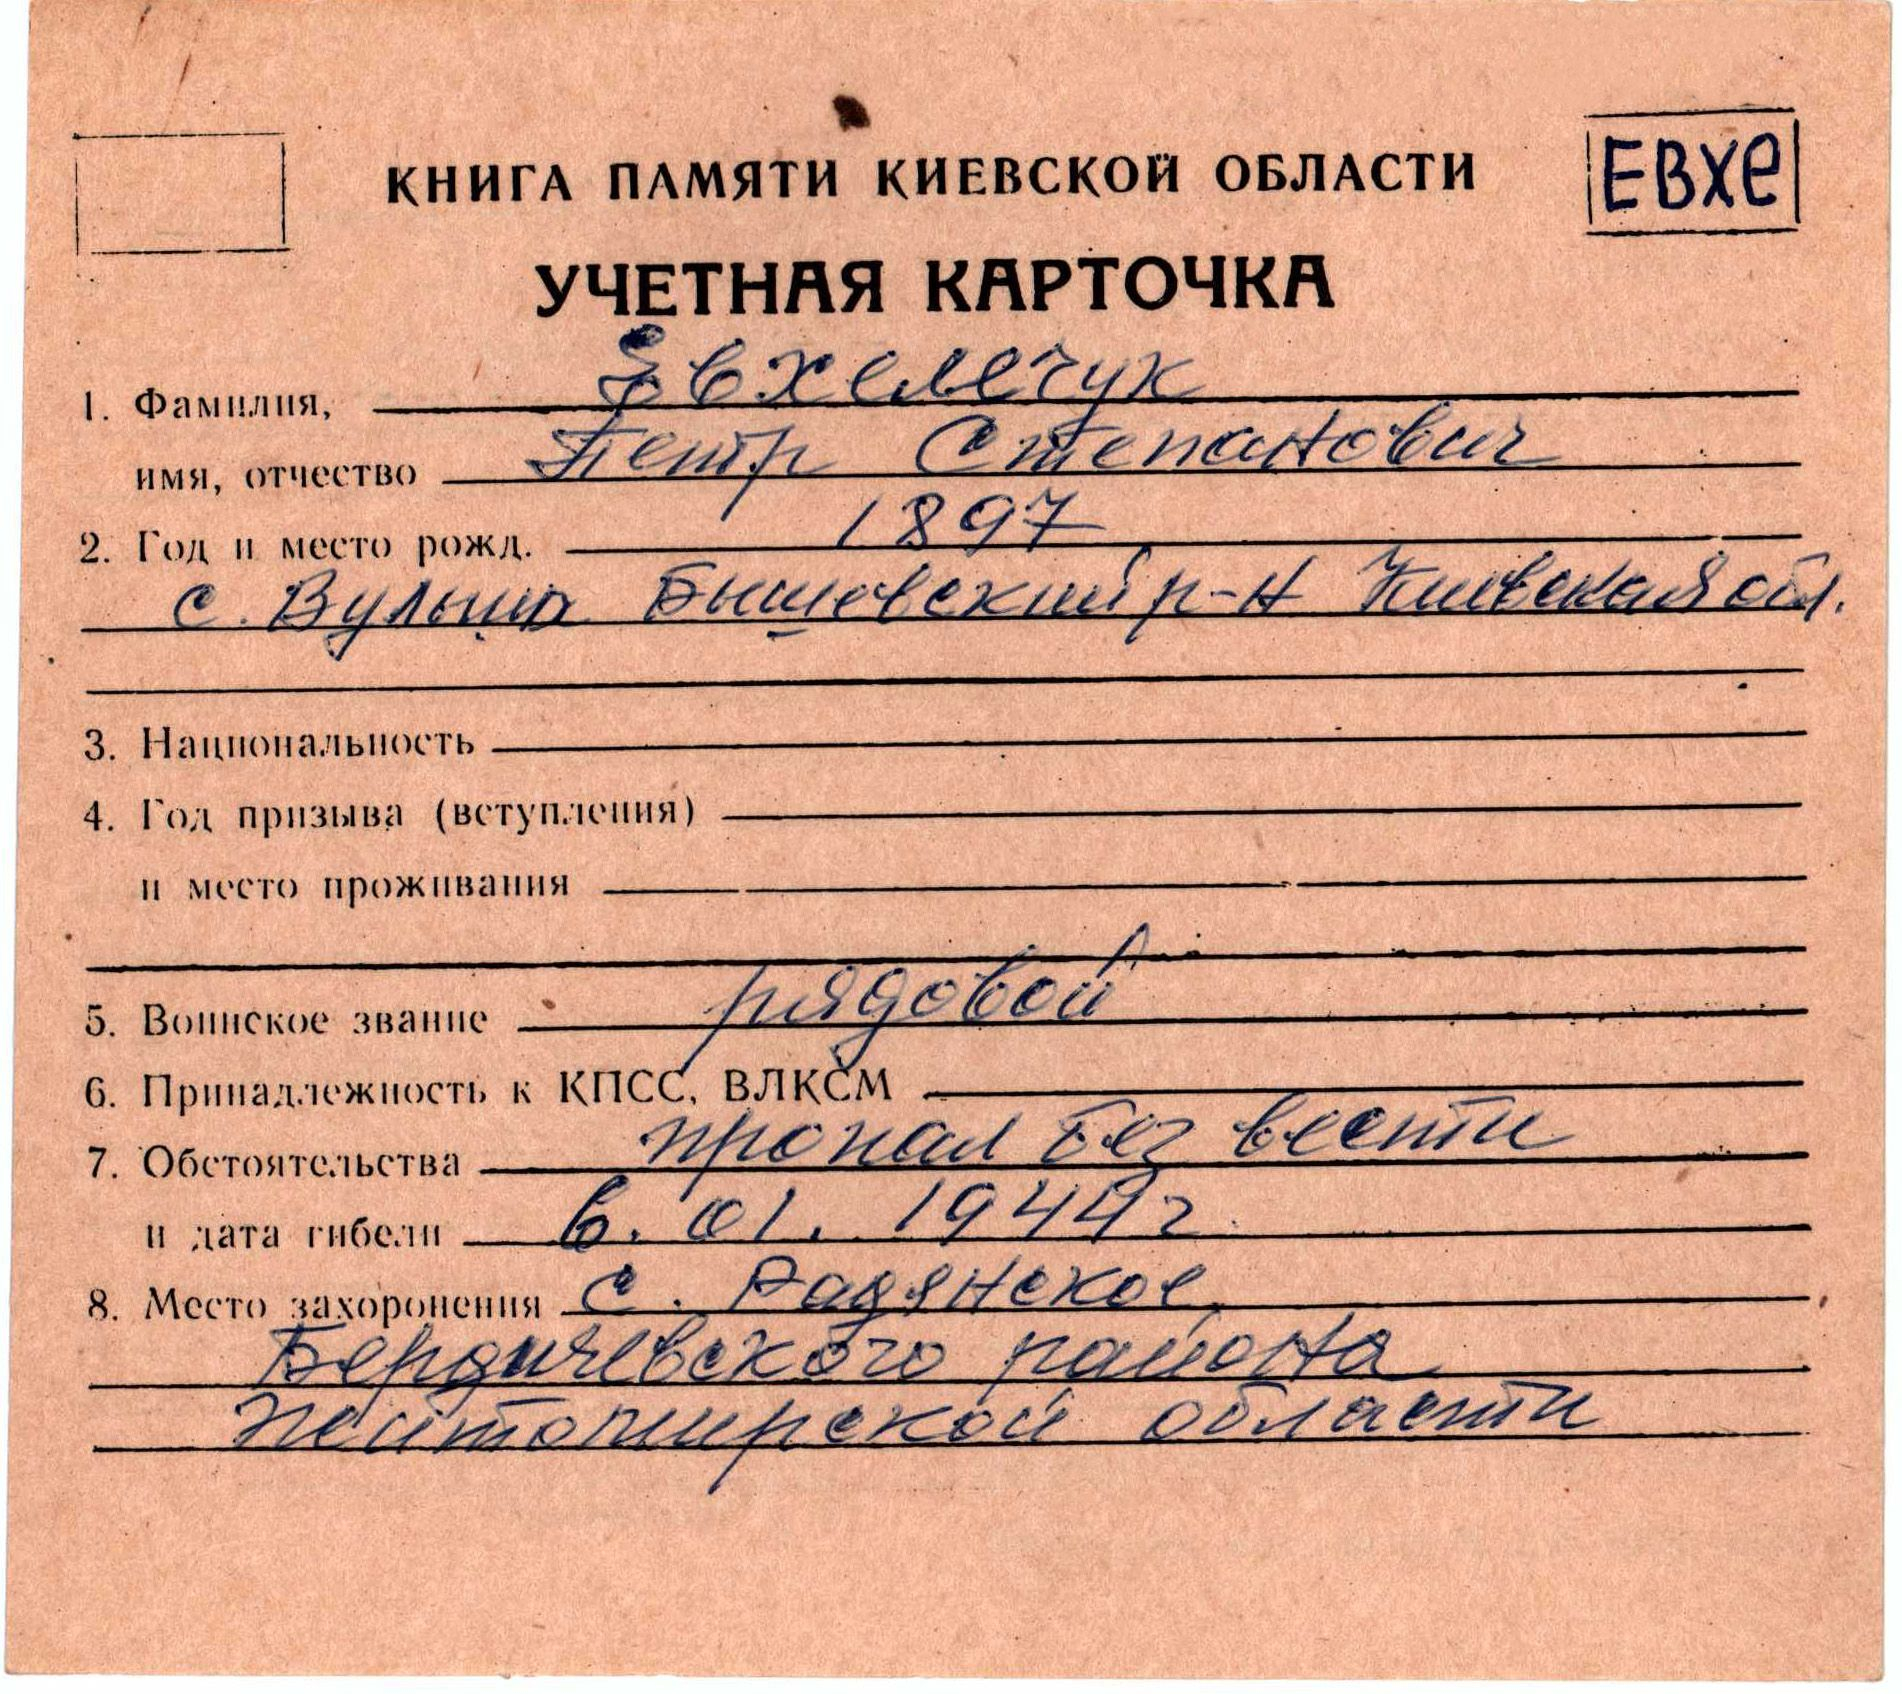 КНИГА ПАМЯТИ КИЕВСКОЙ ОБЛАСТИ
ЕВХЕ
УЧЕТНАЯ КАРТОЧКА
1. Фамилия, Евхемечук
имя, отчество Петр Степанович
2. Год и место рожд. 1897
с. Бышевский р-н Киевская обл.
3. Национальность
4. Год призыва (вступления)
и место проживания
5. Воинское звание рядовой
6. Принадлежность к КПСС, ВЛКСМ
7. Обстоятельства пропал без вести
и дата гибели 6. 01. 1944 г.
8. Место захоронения с. Радянское,
Бердичевского района
Житомирской области